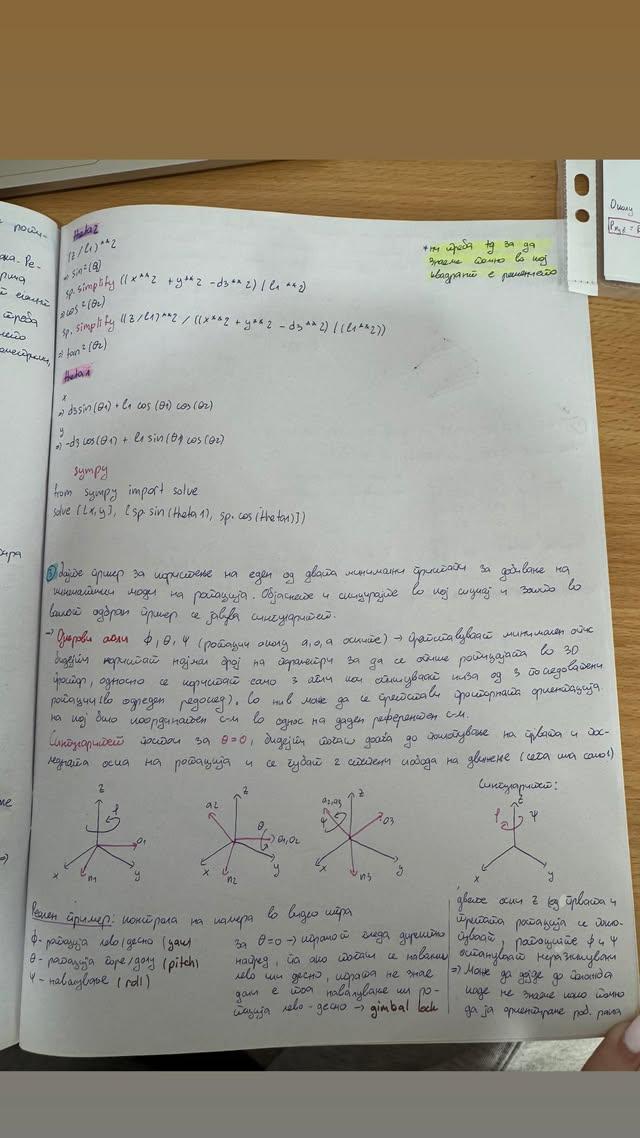 theta2
(z/l1)**2
=> sin²(θ)
sp.simplify ((x**2 + y**2 - d3**2) / l1**2)
=> cos²(θ2)
sp.simplify ((z/l1)**2 / ((x**2 + y**2 - d3**2) / (l1**2))
=> tan²(θ2)
*ни треба tg за да
знаеме точно во кој
квадрант е решението
theta1
x
=> d3sin(θ1) + l1 cos(θ1) cos(θ2)
y
=> -d3 cos(θ1) + l1 sin(θ1) cos(θ2)
sympy
from sympy import solve
solve ([x,y], [sp.sin(theta1), sp.cos(theta1)])
Дајте пример за користење на еден од двата минимални пристапи за добивање на
кинематички модел на ротација. Објаснете и скицирајте во кој случај и зошто во
вашиот одбран пример се јавува сингуларитет.
→ Ојлерови агли φ, θ, ψ (ротации околу a, o, a оските) → претставуваат минимален опис
бидејќи користат најмал број на параметри за да се опише ротацијата во 3D
простор, односно се користат само 3 агли кои опишуваат низа од 3 последователни
ротации (во одреден редослед). Во нив може да се претстави просторната ориентација
на кој било координатен с-м во однос на даден референтен с-м.
Сингуларитет постои за θ=0, бидејќи тогаш доаѓа до поклопување на првата и пос-
ледната оска на ротација и се губат 2 степени слобода на движење (сега има само 1)
Сингуларитет:
z φ o1 x n1 y
a2 z θ o1,o2 x n2 y
a2,a3 z ψ o3 x n3 y
z φ ψ x y
Реален пример: контрола на камера во видео игра
φ - ротација лево/десно (yaw)
θ - ротација горе/долу (pitch)
ψ - навалување (roll)
за θ=0 → играчот гледа директно
напред, па ако тогаш се навали
лево или десно, играта не знае
дали е тоа навалување или ро-
тација лево-десно → gimbal lock
двете оски z кај првата и
третата ротација се покло-
пуваат, ротациите φ и ψ
остануваат неразличливи
=> Може да дојде до
каде не знаеме како точно
да ја ориентираме роб. рака
Околу